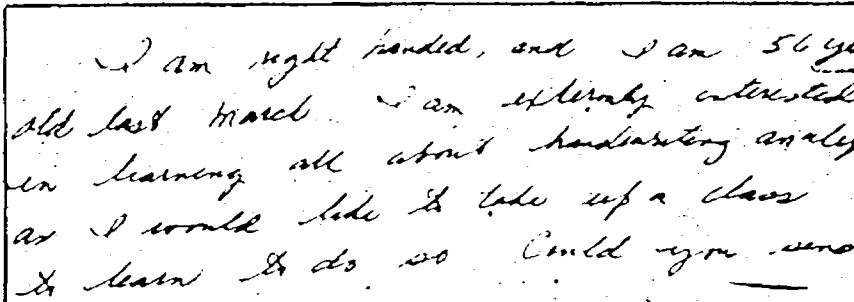 I am right handed, and I am 56 ye
old last March I am extremly interested
in learning all about handwriting analy
as I would like to take up a class
to learn to do so Could you send